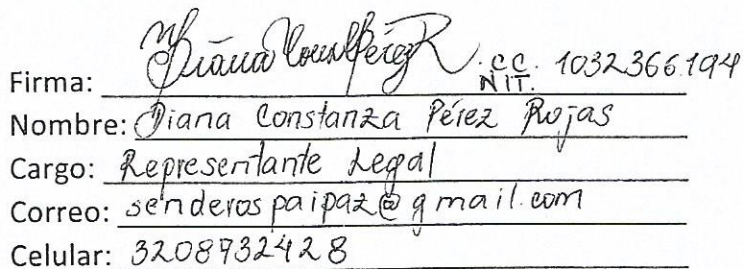 Firma: Diana Cons Pérez R. CC. 1032366194
NIT.
Nombre: Diana Constanza Pérez Rojas
Cargo: Representante Legal
Correo: senderospaipaz@gmail.com
Celular: 3208932428